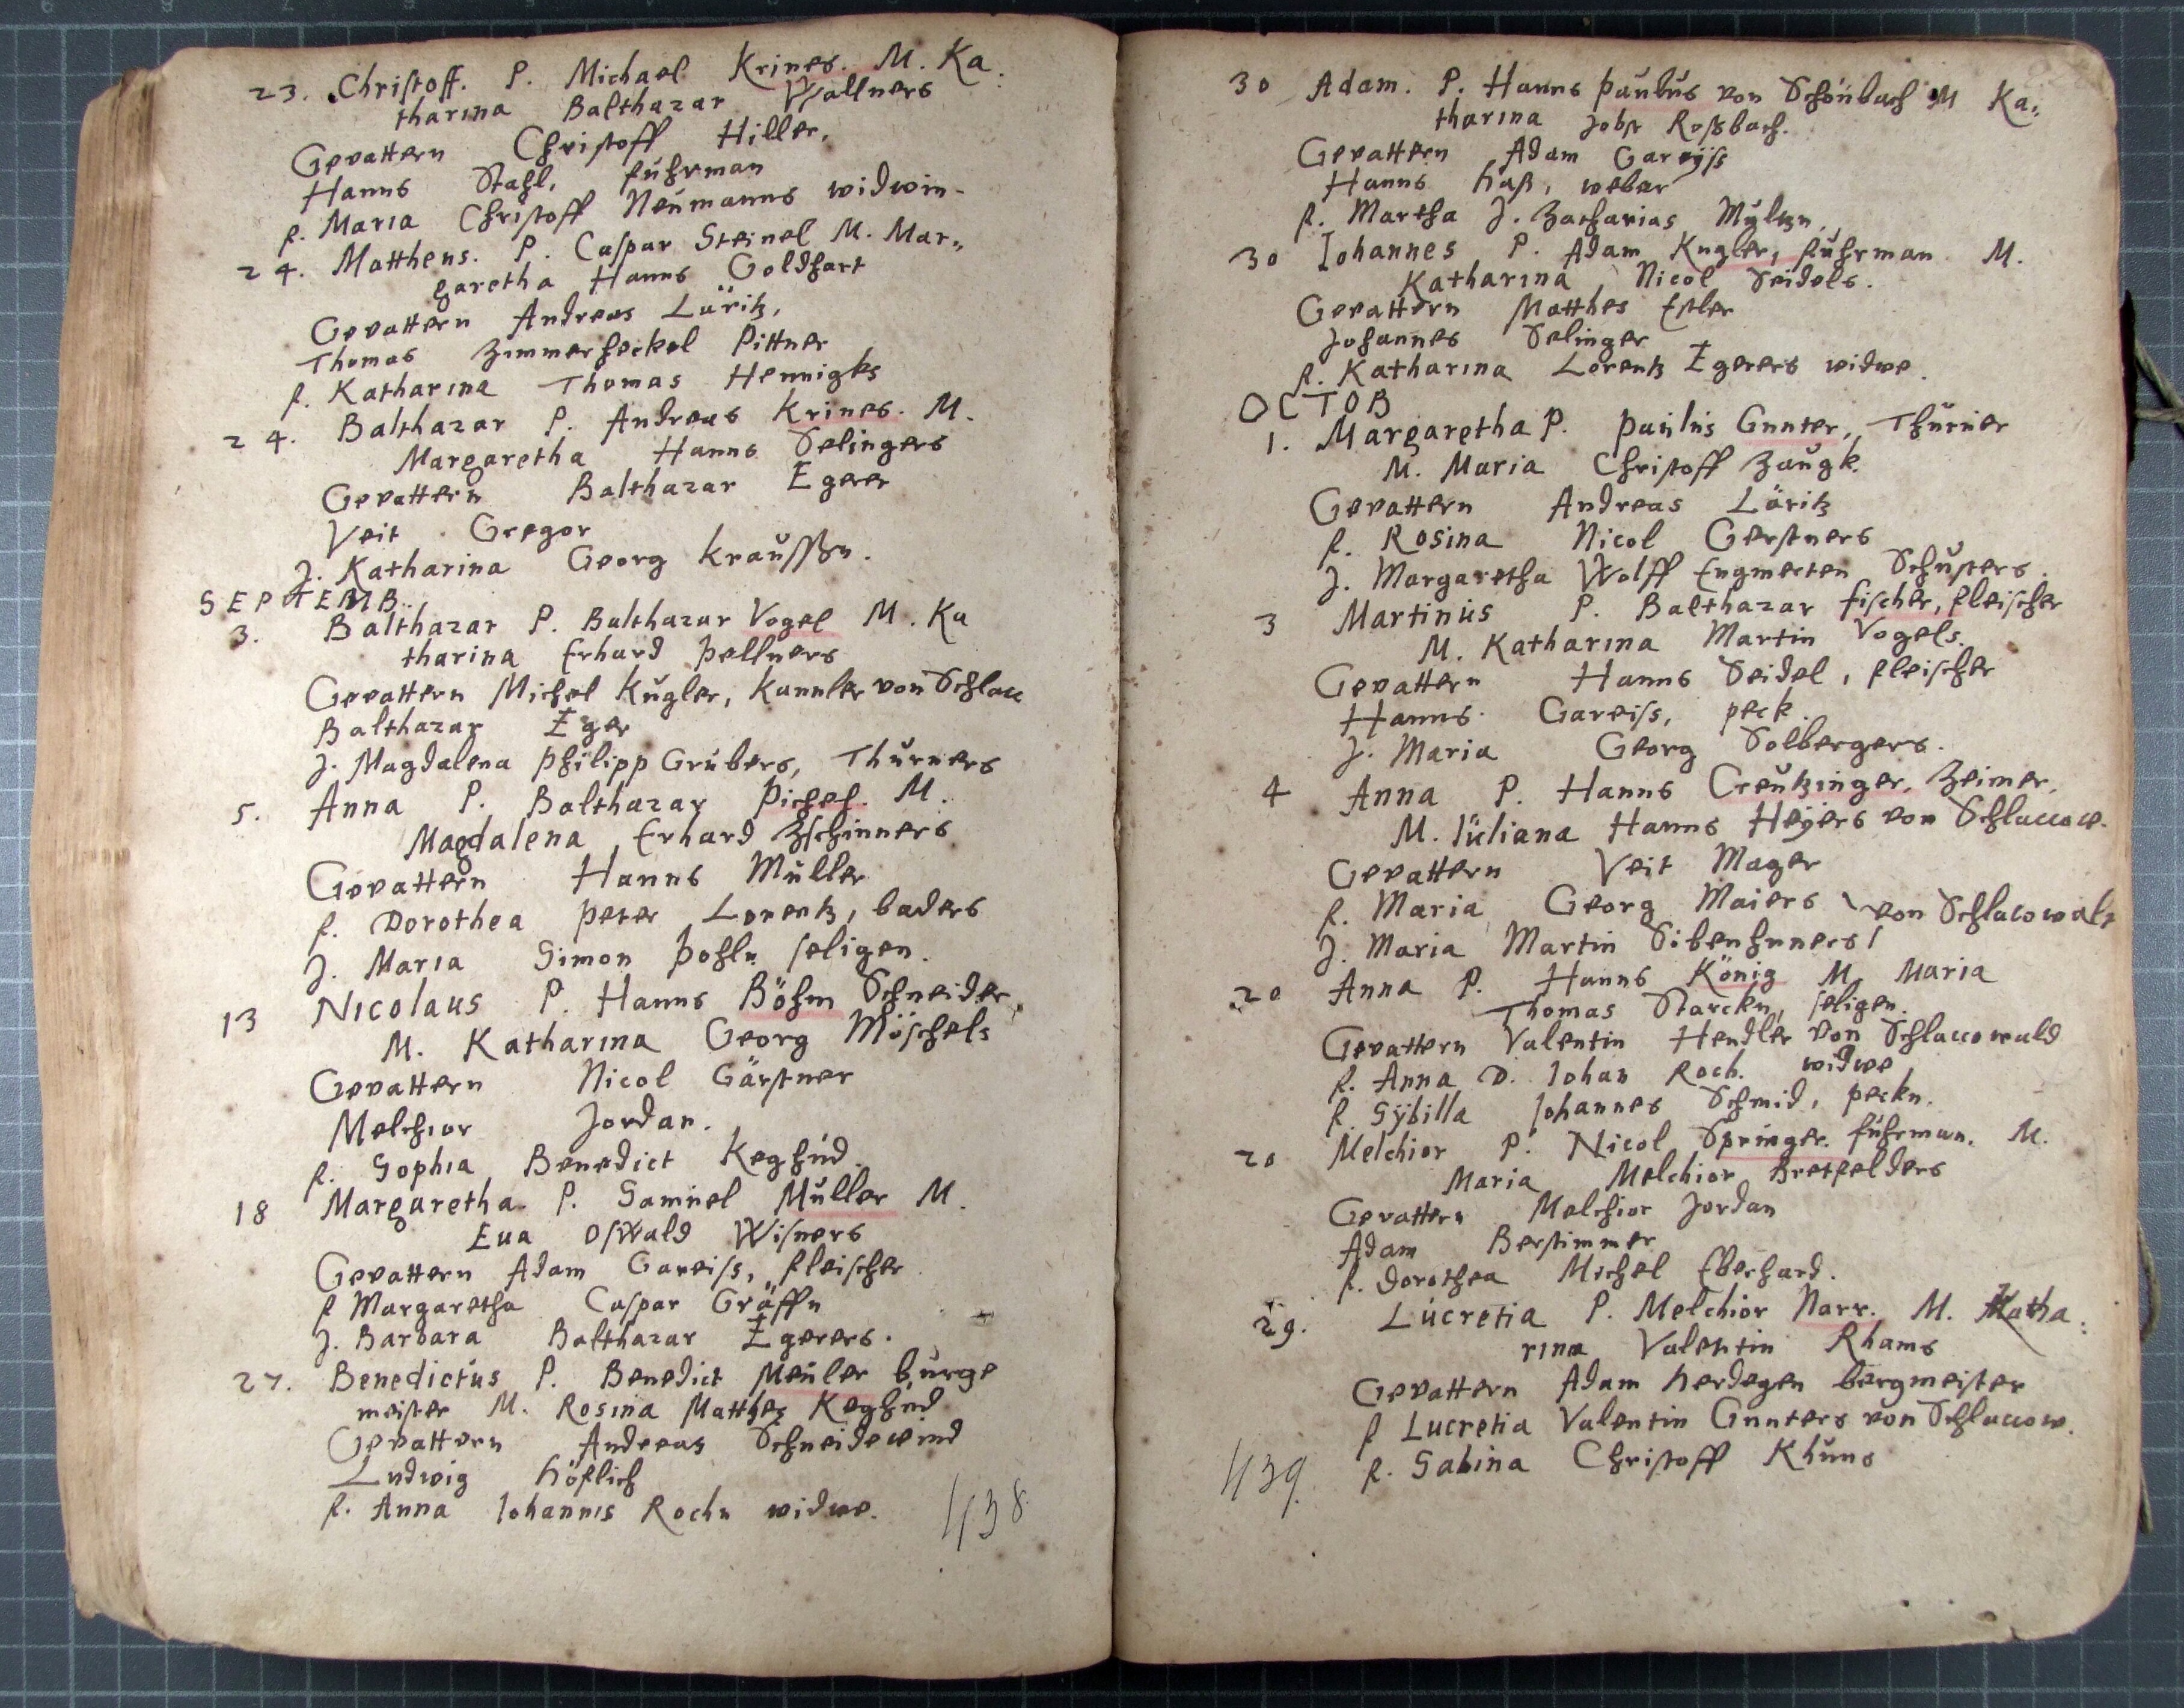 23. Christoff. P. Michael Krines. M. Ka
tharina Balthazar Wallners
Gevattern Christoff Hiller,
Hanns Stahl, fuhrman
f. Maria Christoff Neumanns widwin
24. Matthens. P. Caspar Steinel M. Mar„
garetha Hanns Goldhart
Gevattern Andreas Löritz,
Thomas Zimmerheckel Pittner
f. Katharina Thomas Hennigks
24. Balthazar P. Andreas Krines. M.
Margaretha Hanns Selingers
Gevattern Balthazar Egerer
Veit Gregor
J. Katharina Georg Kraußen.
SEPTEMB.
3. Balthazar P. Balthazar Vogel M. Ka
tharina Erhard Pellners
Gevattern Michel Kugler, Kannler von Schlacc
Balthazar Eger
J. Magdalena Philipp Grubers, Thurners
5. Anna P. Balthazar Pichel. M.
Magdalena Erhard Zschinners
Gevattern Hanns Müller
f. Dorothea Peter Lorentz, baders
J. Maria Simon Pohln seligen.
13 Nicolaus P. Hanns Böhm Schneider,
M. Katharina Georg Möschels
Gevattern Nicol Gärstner
Melchior Jordan.
f. Sophia Benedict Keghüd.
18 Margaretha. P. Samuel Müller M.
Eua Oswald Wisners
Gevattern Adam Gareiss, fleischer
f Margaretha Caspar Gräffn
J. Barbara Balthazar Egerers.
27. Benedictus P. Benedict Meüler burge
meister M. Rosina Matthes Keghüd
Gevattern Andreas Schneidewind
Ludwig Höflich
f. Anna Iohannis Rochn widwe.
438
30 Adam. P. Hanns Paulus von Schönbach M Ka:
tharina Jobst Roßbach.
Gevattern Adam Gareÿss
Hanns Haß, weber
f. Martha J. Zacharias Mÿltzn
30 Iohannes P. Adam Kugler, fuhrman M.
Katharina, Nicol Seidels.
Gevattern Matthes Ester
Johannes Selinger
f. Katharina Lorentz Egerers widwe.
OCTOB
1. Margaretha P. Paulus Gunter, Thurner
M. Maria Christoff Zaugk.
Gevattern Andreas Löritz
f. Rosina Nicol Gerstners
J. Margaretha Wolff Engmerten Schusters.
3 Martinus P. Balthazar fischer, fleischer
M. Katharina Martin Vogels.
Gevattern Hanns Seidel, fleischer
Hanns Gareiss, peck.
J. Maria Georg Solbergers.
4 Anna P. Hanns Creutzinger, Zeimer,
M. Iuliana Hanns Heÿers von Schlaccow.
Gevattern Veit Mager
f. Maria Georg Maiers von Schlacowalt
J. Maria Martin Sibenhuners
20 Anna P. Hanns König M. Maria
Thomas Starckn, seligen.
Gevattern Valentin Hendler von Schlaccowald
f. Anna D. Iohan Roch. widwe
f. Sÿbilla Iohannes Schmid, peckn.
20 Melchior P. Nicol Springer. fuhrman. M.
Maria Melchior Bretfelders
Gevattern Melchior Jordan
Adam Berstimmer
f. Dorothea Michel Eberhard.
29. Lucretia P. Melchior Narr. M. Katha:
rina Valentin Rhams
Gevattern Adam Herdegen bergmeister
f Lucretia Valentin Gunters von Schlaccow.
f. Sabina Christoff Khuns
439.